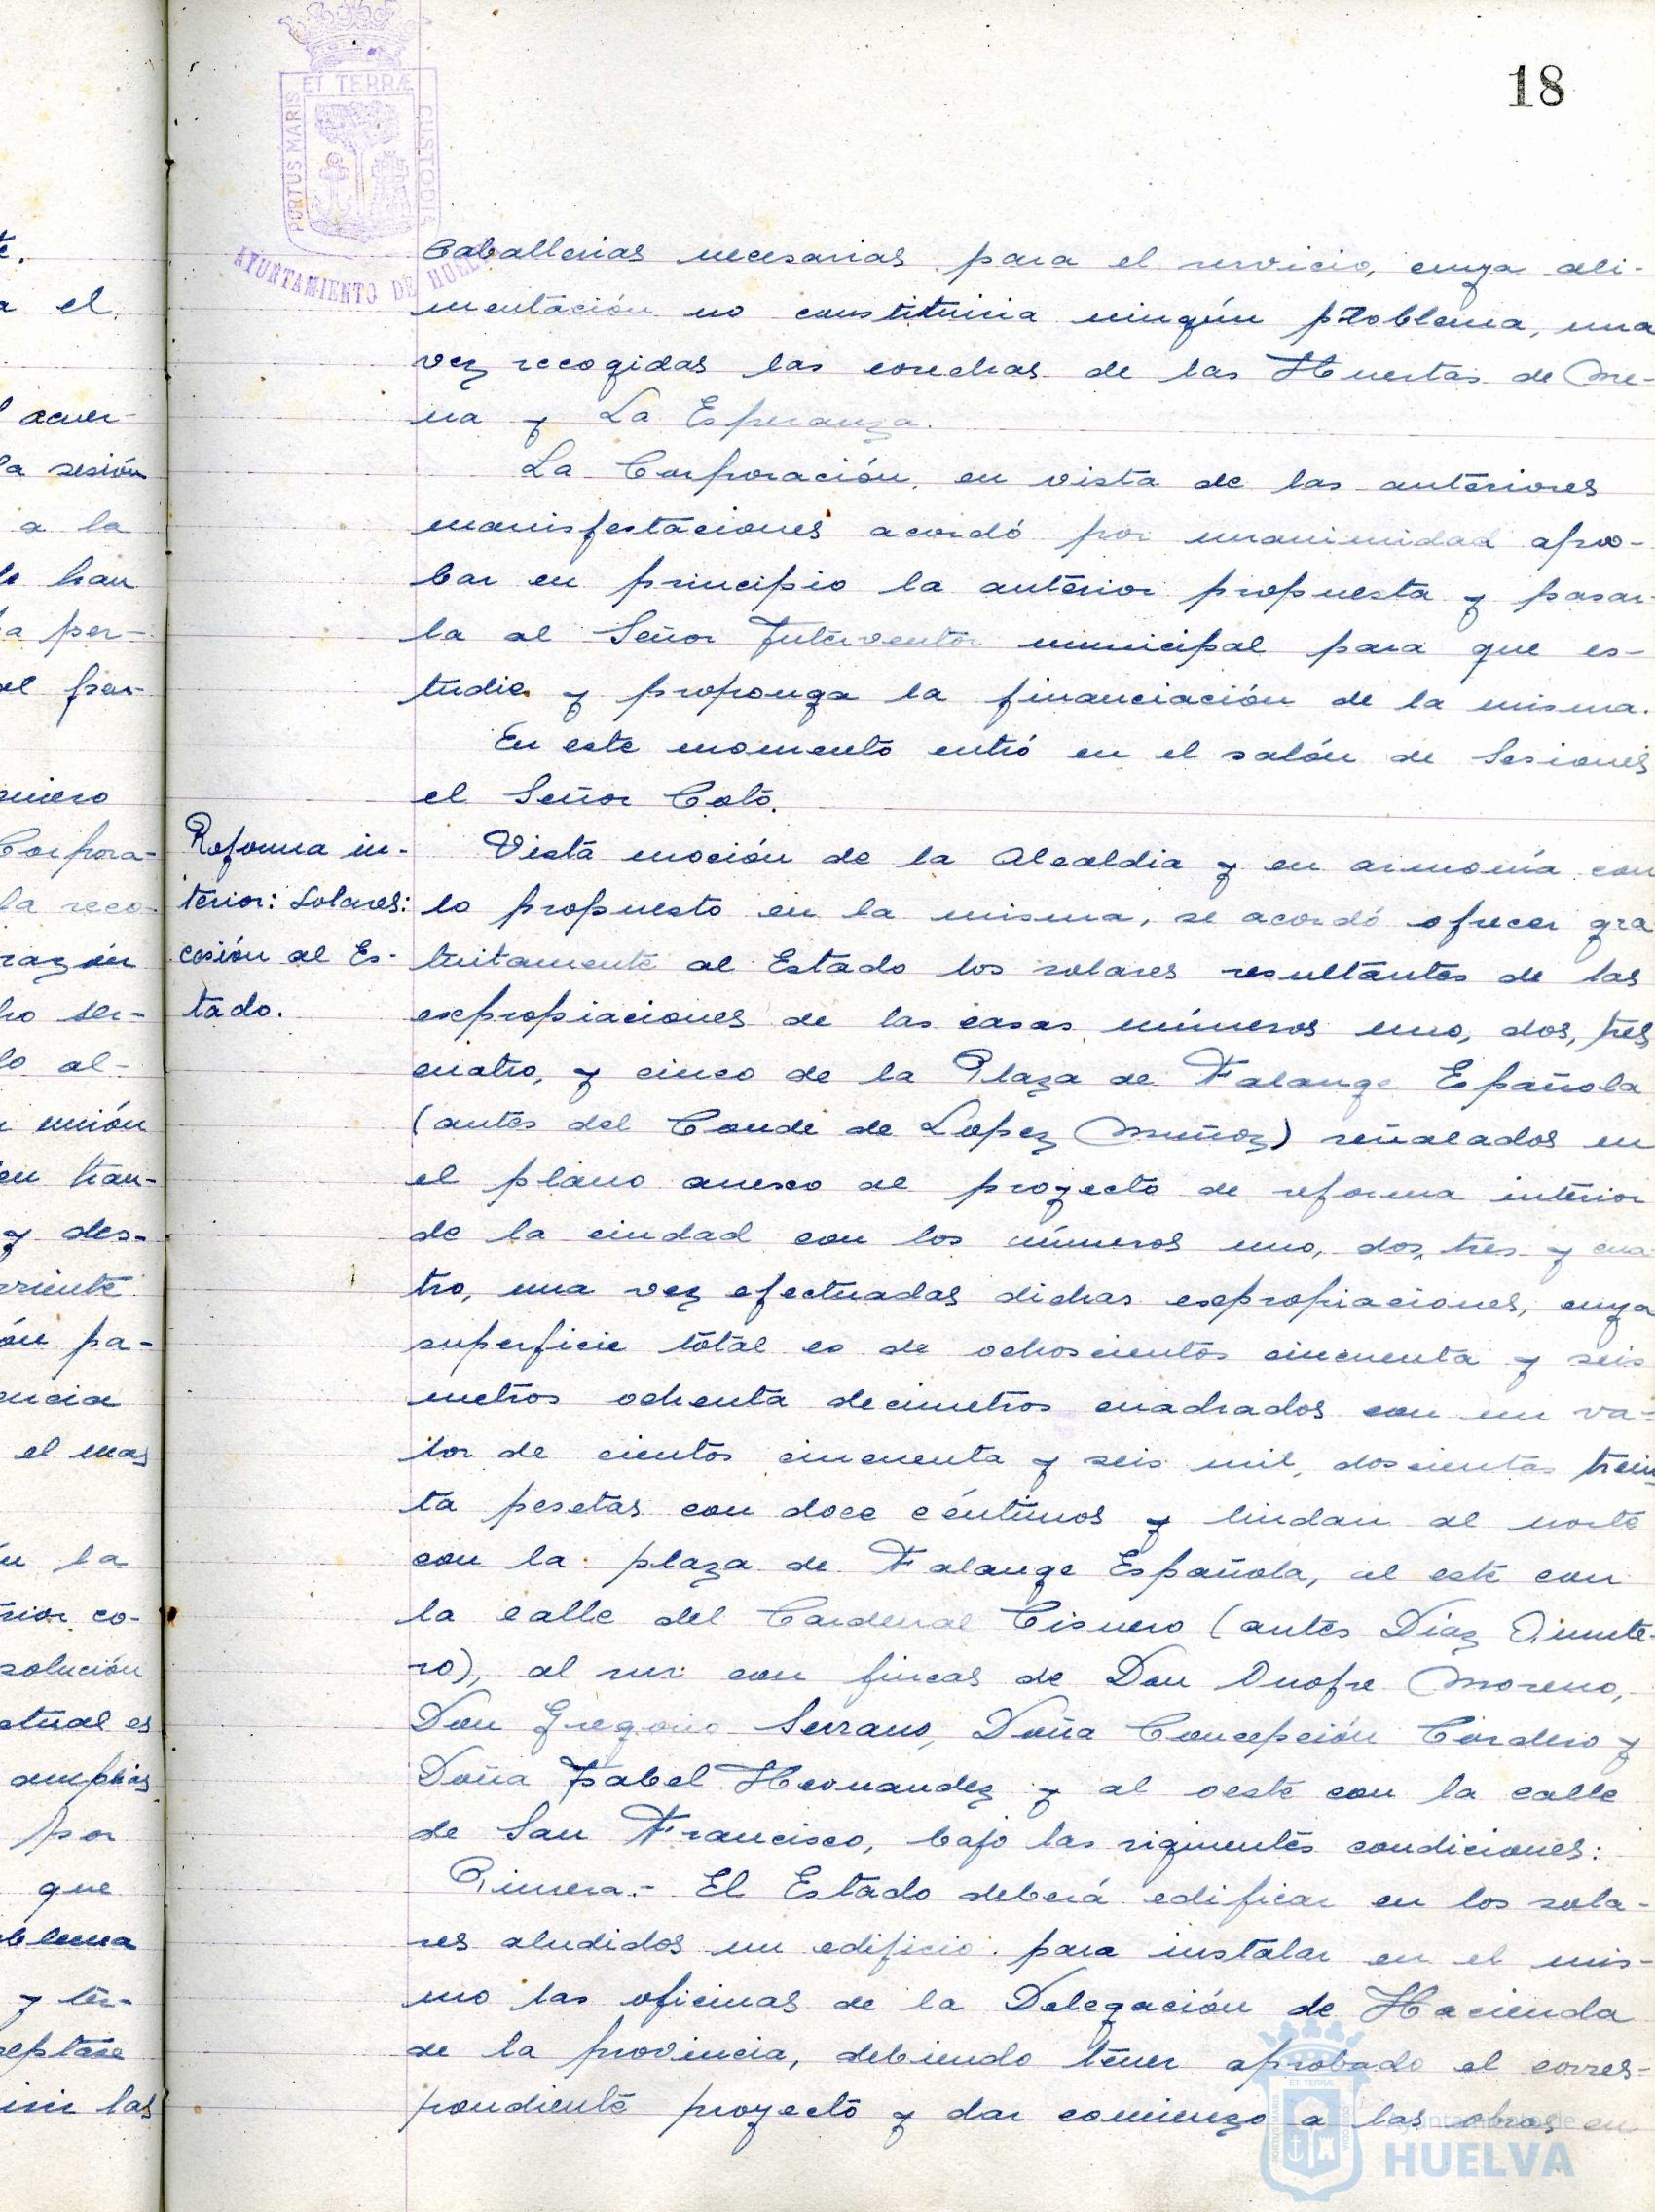 18
ET TERRÆ
PORTUS MARIS
CUSTODIA
AYUNTAMIENTO DE HUELVA
caballerias necesarias para el servicio, cuya ali-
mentación no constituiria ningún problema, una
vez recogidas las cosechas de las Huertas de Me-
na y La Esperanza.
La Corporación, en vista de las anteriores
manisfestaciones acordó por unanimidad apro-
bar en principio la anterior propuesta y pasar-
la al Señor Interventor municipal para que es-
tudie y proponga la financiación de la misma.
En este momento entró en el salón de Sesiones
el Señor Coto.
Reforma in-
terior: Solares:
cesión al Es-
tado.
Vista moción de la Alcaldia y en armonía con
lo propuesto en la misma, se acordó ofrecer gra
tuitamente al Estado los solares resultantes de las
expropiaciones de las casas números uno, dos, tres
cuatro, y cinco de la Plaza de Falange Española
(antes del Conde de Lopez Muñoz) señalados en
el plano anexo al proyecto de reforma interior
de la ciudad con los números uno, dos, tres y cua-
tro, una vez efectuadas dichas expropiaciones, cuya
superficie total es de ochoscientos cincuenta y seis
metros ochenta decimetros cuadrados con un va-
lor de cientos cincuenta y seis mil, doscientas trein
ta pesetas con doce céntimos y lindan al norte
con la plaza de Falange Española, al este con
la calle del Cardenal Cisnero (antes Diaz Quinte-
ro), al sur con fincas de Don Onofre Moreno,
Don Gregorio Serrano, Doña Concepción Cordero y
Doña Isabel Hernandez y al oeste con la calle
de San Francisco, bajo las siguientes condiciones:
Primera.- El Estado deberá edificar en los sola-
res aludidos un edificio para instalar en el mis-
mo las oficinas de la Delegación de Hacienda
de la provincia, debiendo tener aprobado el corres-
pondiente proyecto y dar comienzo a las obras en
Ayuntamiento de
HUELVA